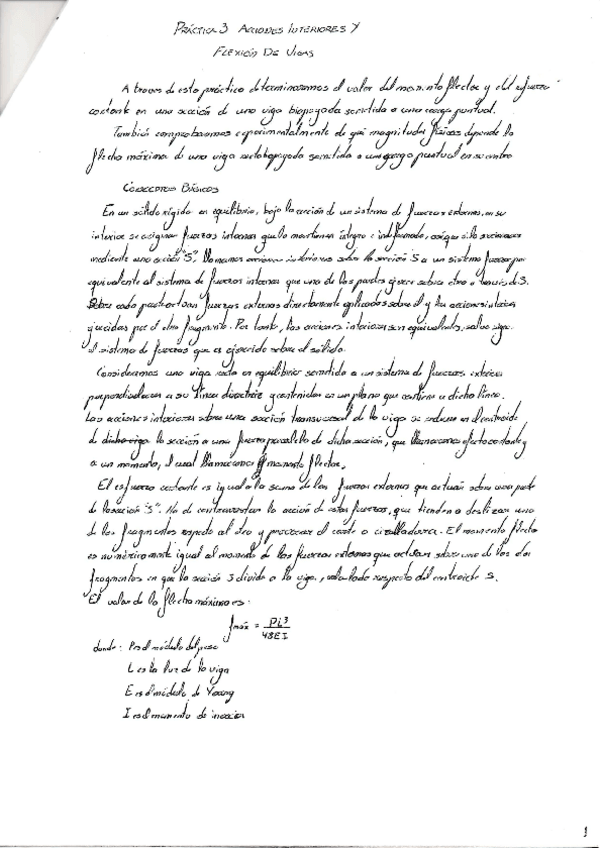 PRÁCTICA 3 ACCIONES INTERIORES Y
FLEXIÓN DE VIGAS
A traves de esta práctica determinaremos el valor del momento flector y del esfuerzo
cortante en una sección de una viga biapoyada sometida a una carga puntual.
También comprobaremos experimentalmente de qué magnitudes físicas depende la
flecha máxima de una viga biapoyada sometida a una carga puntual en su centro
CONCEPTOS BÁSICOS
En un sólido rígido en equilibrio, bajo la acción de un sistema de fuerzas externas, en su
interior se originan fuerzas internas que lo mantienen íntegro e indeformado, aunque si lo seccionamos
mediante una sección "S". Llamamos acciones interiores sobre la sección S a un sistema fuerza-par
equivalente al sistema de fuerzas internas que una de las partes ejerce sobre otra a través de S.
Sobre cada parte actúan fuerzas externas directamente aplicadas sobre él y las acciones interiores
ejercidas por el otro fragmento. Por tanto, las acciones interiores son equivalentes, salvo signo
al sistema de fuerzas que es ejercido sobre el sólido.
Consideramos una viga recta en equilibrio sometida a un sistema de fuerzas exteriores
perpendiculares a su línea directriz y contenidas en un plano que contiene a dicha línea.
Las acciones interiores sobre una sección transversal de la viga se reducen en el centroide
de la sección a una fuerza paralela de dicha sección, que llamaremos esfuerzo cortante y
a un momento, el cual llamaremos momento flector.
El esfuerzo cortante es igual a la suma de las fuerzas externas que actúan sobre una parte
de la sección "S". No de contrarrestar la acción de estas fuerzas, que tienden a deslizar uno
de los fragmentos respecto al otro y provocar el corte o cizalladura. El momento flector
es numéricamente igual al momento de las fuerzas externas que actúan sobre uno de los dos
fragmentos en que la sección S divide a la viga, calculado respecto del centroide S.
El valor de la flecha máxima es:
fmáx = PL³/48EI
donde: P es el módulo del peso
L es la luz de la viga
E es el módulo de Young
I es el momento de inercia
1